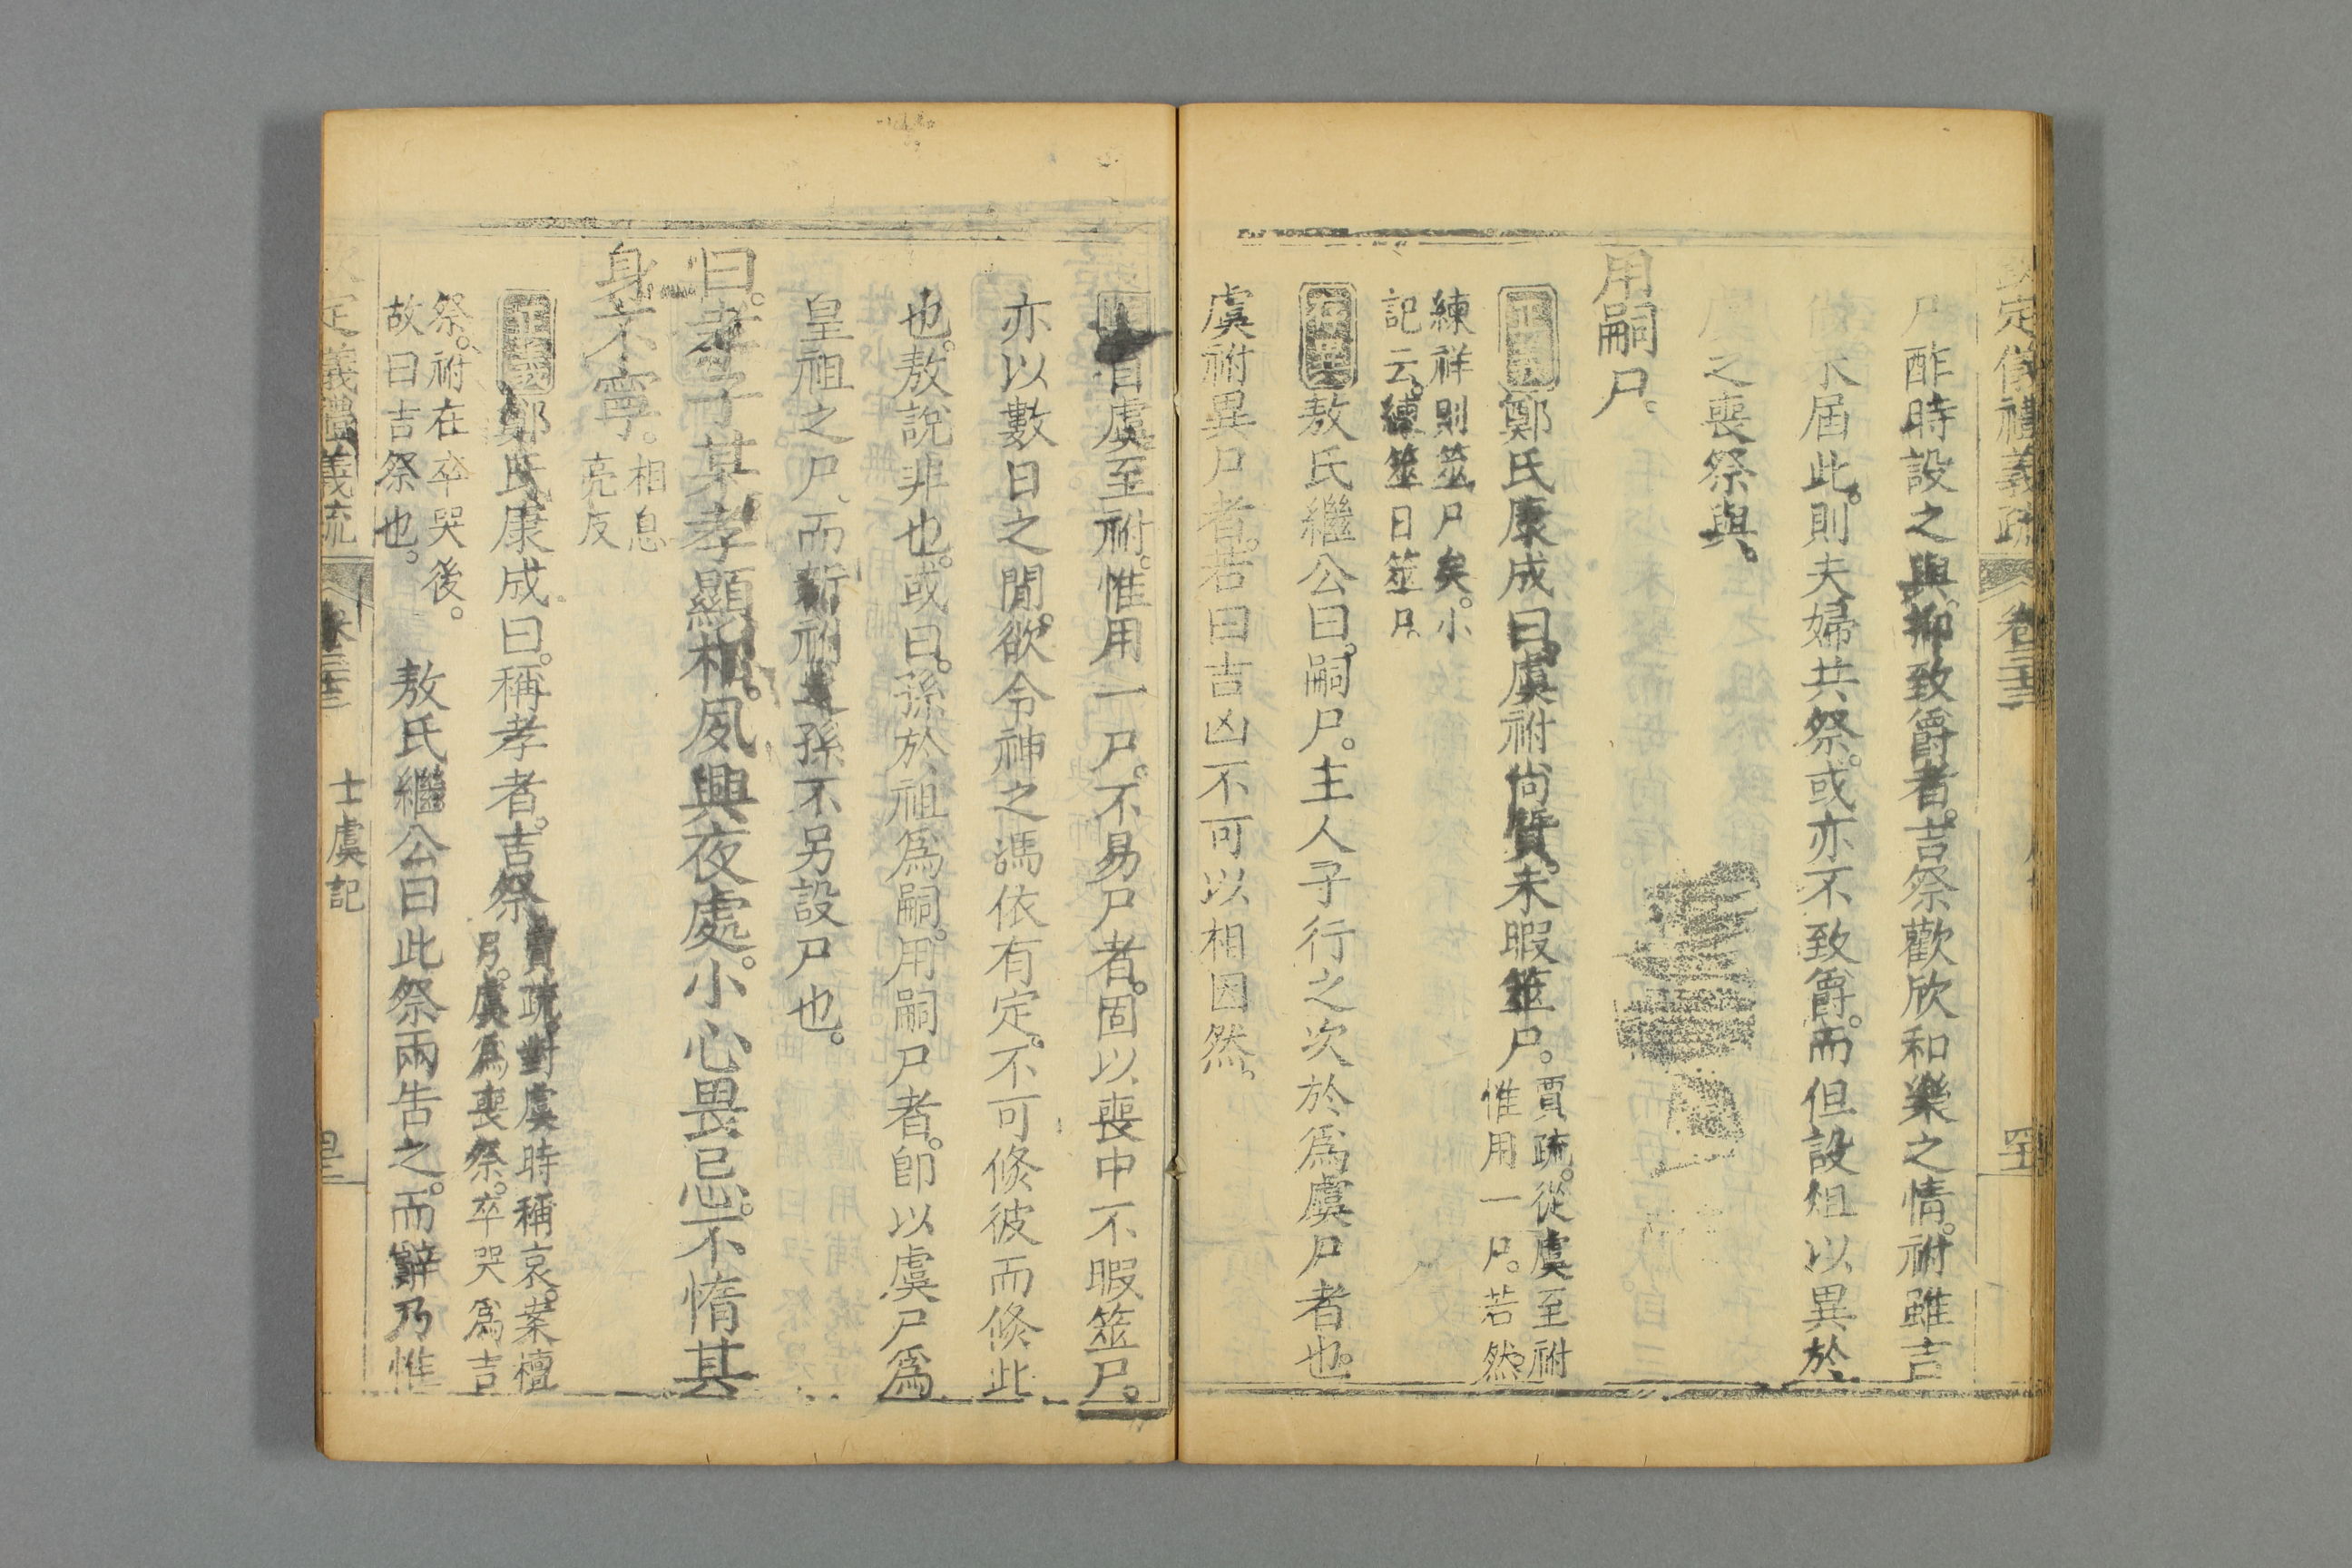 欽定儀禮義疏 卷三十三
尸酢時設之與。抑致爵者。吉祭歡欣和樂之情。祔雖吉
不屆此。則夫婦共祭。或亦不致爵。而但設俎以異於
之喪祭與。
用嗣尸。
正義鄭氏康成曰。虞祔尚質。未暇筮尸。賈疏。從虞至祔
惟用一尸。若然
練祥則筮尸矣。小
記云。練筮日筮尸。
存異敖氏繼公曰。嗣尸。主人子行之次於爲虞尸者也。
虞祔異尸者。若曰吉凶不可以相因然。
自虞至祔。惟用一尸。不易尸者。固以喪中不暇筮尸。
亦以數日之閒。欲令神之馮依有定。不可倏彼而倏此
也。敖說非也。或曰。孫於祖爲嗣。用嗣尸者。卽以虞尸爲
皇祖之尸、而新祔之孫不另設尸也。
曰。孝子某孝顯相。夙興夜處。小心畏忌。不惰其
身。不寧。相息
亮反
正義鄭氏康成曰。稱孝者。吉祭。賈疏。對虞時稱哀。案檀
弓。虞爲喪祭。卒哭爲吉
祭。祔在卒哭後。
故曰吉祭也。 敖氏繼公曰此祭兩告之。而辭乃惟
定義禮義疏 卷三十三 士虞記